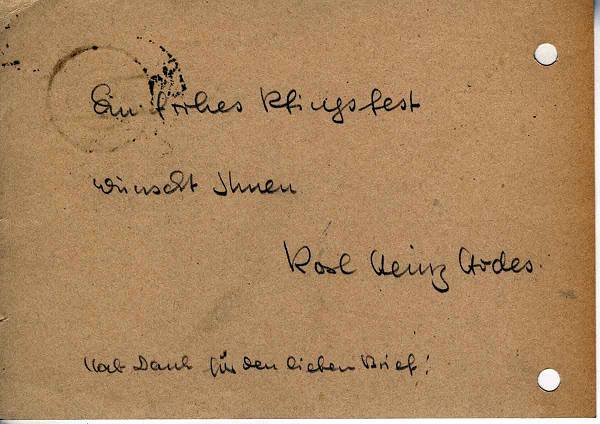 Ein frohes Pfingstfest
wünscht Ihnen
Karl Heinz Hodes.
Hab Dank für den lieben Brief!